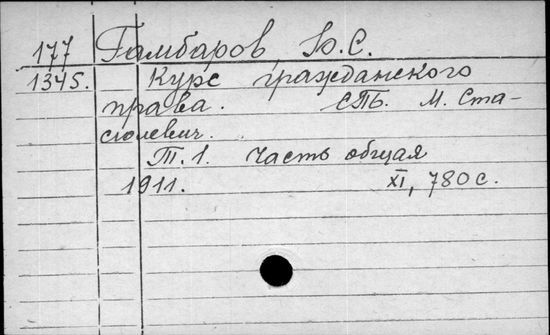 177 Гамбаров, Ю.С.
1345. Курс гражданского
права. СПБ. М. Ста-
сюлевич.
Т. 1. Часть общая
1911. XI, 780 с.